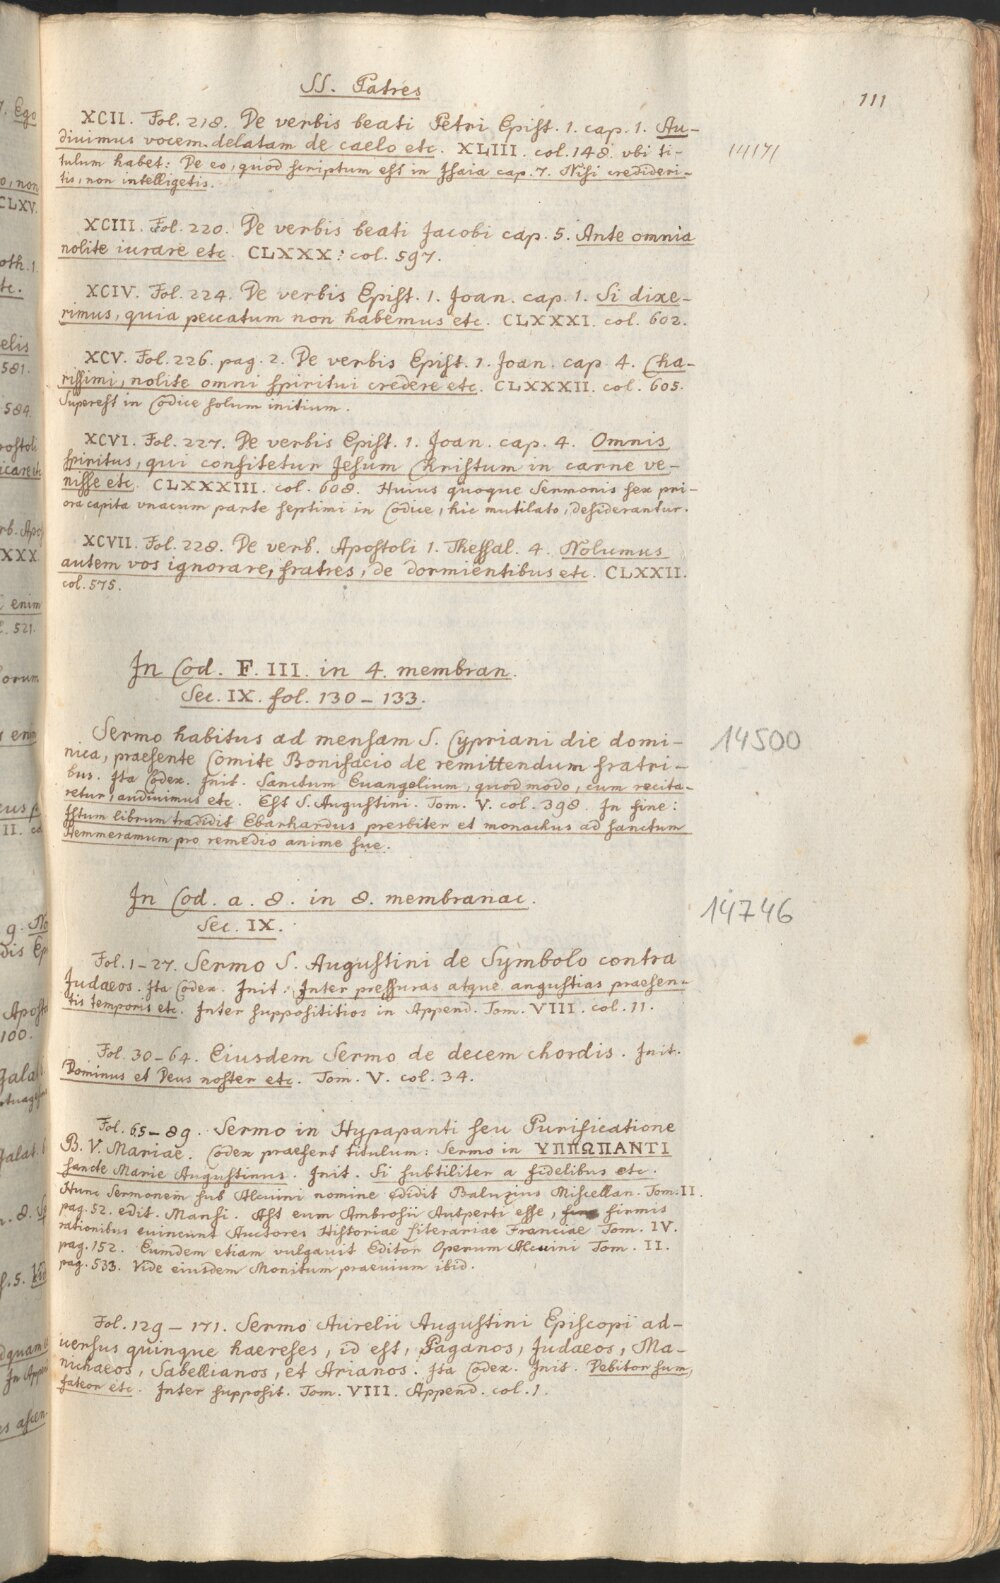 SS. Patres
111
XCII. Fol. 218. De verbis beati Petri Epist. 1. cap. 1. Au-
diuimus vocem delatam de caelo etc. XLIII. col. 148. vbi ti-
14171
tulum habet: De eo, quod scriptum est in Isaia cap. 7. Nisi credideri-
tis, non intelligetis.
XCIII. Fol. 220. De verbis beati Jacobi cap. 5. Ante omnia
nolite iurare etc. CLXXX: col. 597.
XCIV. Fol. 224. De verbis Epist. 1. Joan. cap. 1. Si dixe-
rimus, quia peccatum non habemus etc. CLXXXI. col. 602.
XCV. Fol. 226. pag. 2. De verbis Epist. 1. Joan. cap 4. Cha-
rissimi, nolite omni spiritui credere etc. CLXXXII. col. 605.
Superest in Codice solum initium.
XCVI. Fol. 227. De verbis Epist. 1. Joan. cap. 4. Omnis
spiritus, qui confitetur Jesum Christum in carne ve-
nisse etc. CLXXXIII. col. 608. Huius quoque Sermonis sex pri-
ora capita vnacum parte septimi in Codice, hic mutilato, desiderantur.
XCVII. Fol. 228. De verb. Apostoli 1. Thessal. 4. Nolumus
autem vos ignorare, fratres, de dormientibus etc. CLXXII.
col. 575.
In Cod. F. III. in 4. membran.
Sec. IX. fol. 130 – 133.
Sermo habitus ad mensam S. Cypriani die domi-
14500
nica, praesente Comite Bonifacio de remittendum fratri-
bus. Ita Codex. Init. Sanctum Euangelium, quod modo, cum recita-
retur, audiuimus etc. Est S. Augustini. Tom. V. col. 398. In fine:
Istum librum tradidit Ebarhardus presbiter et monachus ad sanctum
Hemmeramum pro remedio anime sue.
In Cod. a. 8. in 8. membranac.
14746
Sec. IX.
Fol. 1–27. Sermo S. Augustini de Symbolo contra
Judaeos. Ita Codex. Init: Inter pressuras atque angustias praesen-
tis temporis etc. Inter supposititios in Append. Tom. VIII. col. 11.
Fol. 30–64. Eiusdem Sermo de decem chordis. Init.
Dominus et Deus noster etc. Tom. V. col. 34.
Fol. 65–89. Sermo in Hypapanti seu Purificatione
B. V. Mariae. Codex praesent titulum: Sermo in ΥΠΠΩΠΑΝΤΙ
sancte Marie Augustinus. Init. Si subtiliter a fidelibus etc.
Hunc Sermonem sub Alcuini nomine edidit Baluzius Miscellan. Tom: II.
pag. 52. edit. Mansi. Ast eum Ambrosii Autperti esse, firmis
rationibus euincunt Auctores Historiae literariae Franciae Tom. IV.
pag. 152. Eumdem etiam vulgauit Editor Operum Alcuini Tom. II.
pag. 533. Vide eiusdem Monitum praeuium ibid.
Fol. 129 – 171. Sermo Aurelii Augustini Episcopi ad-
uersus quinque haereses, id est, Paganos, Judaeos, Ma-
nichaeos, Sabellianos, et Arianos. Ita Codex. Init. Debitor sum,
fateor etc. Inter supposit. Tom. VIII. Append. col. 1.